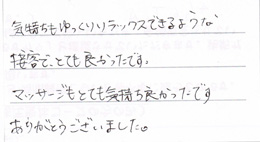 気持ちもゆっくりリラックスできるような
接客で、とても良かったです。
マッサージもとても気持ち良かったです
ありがとうございました。